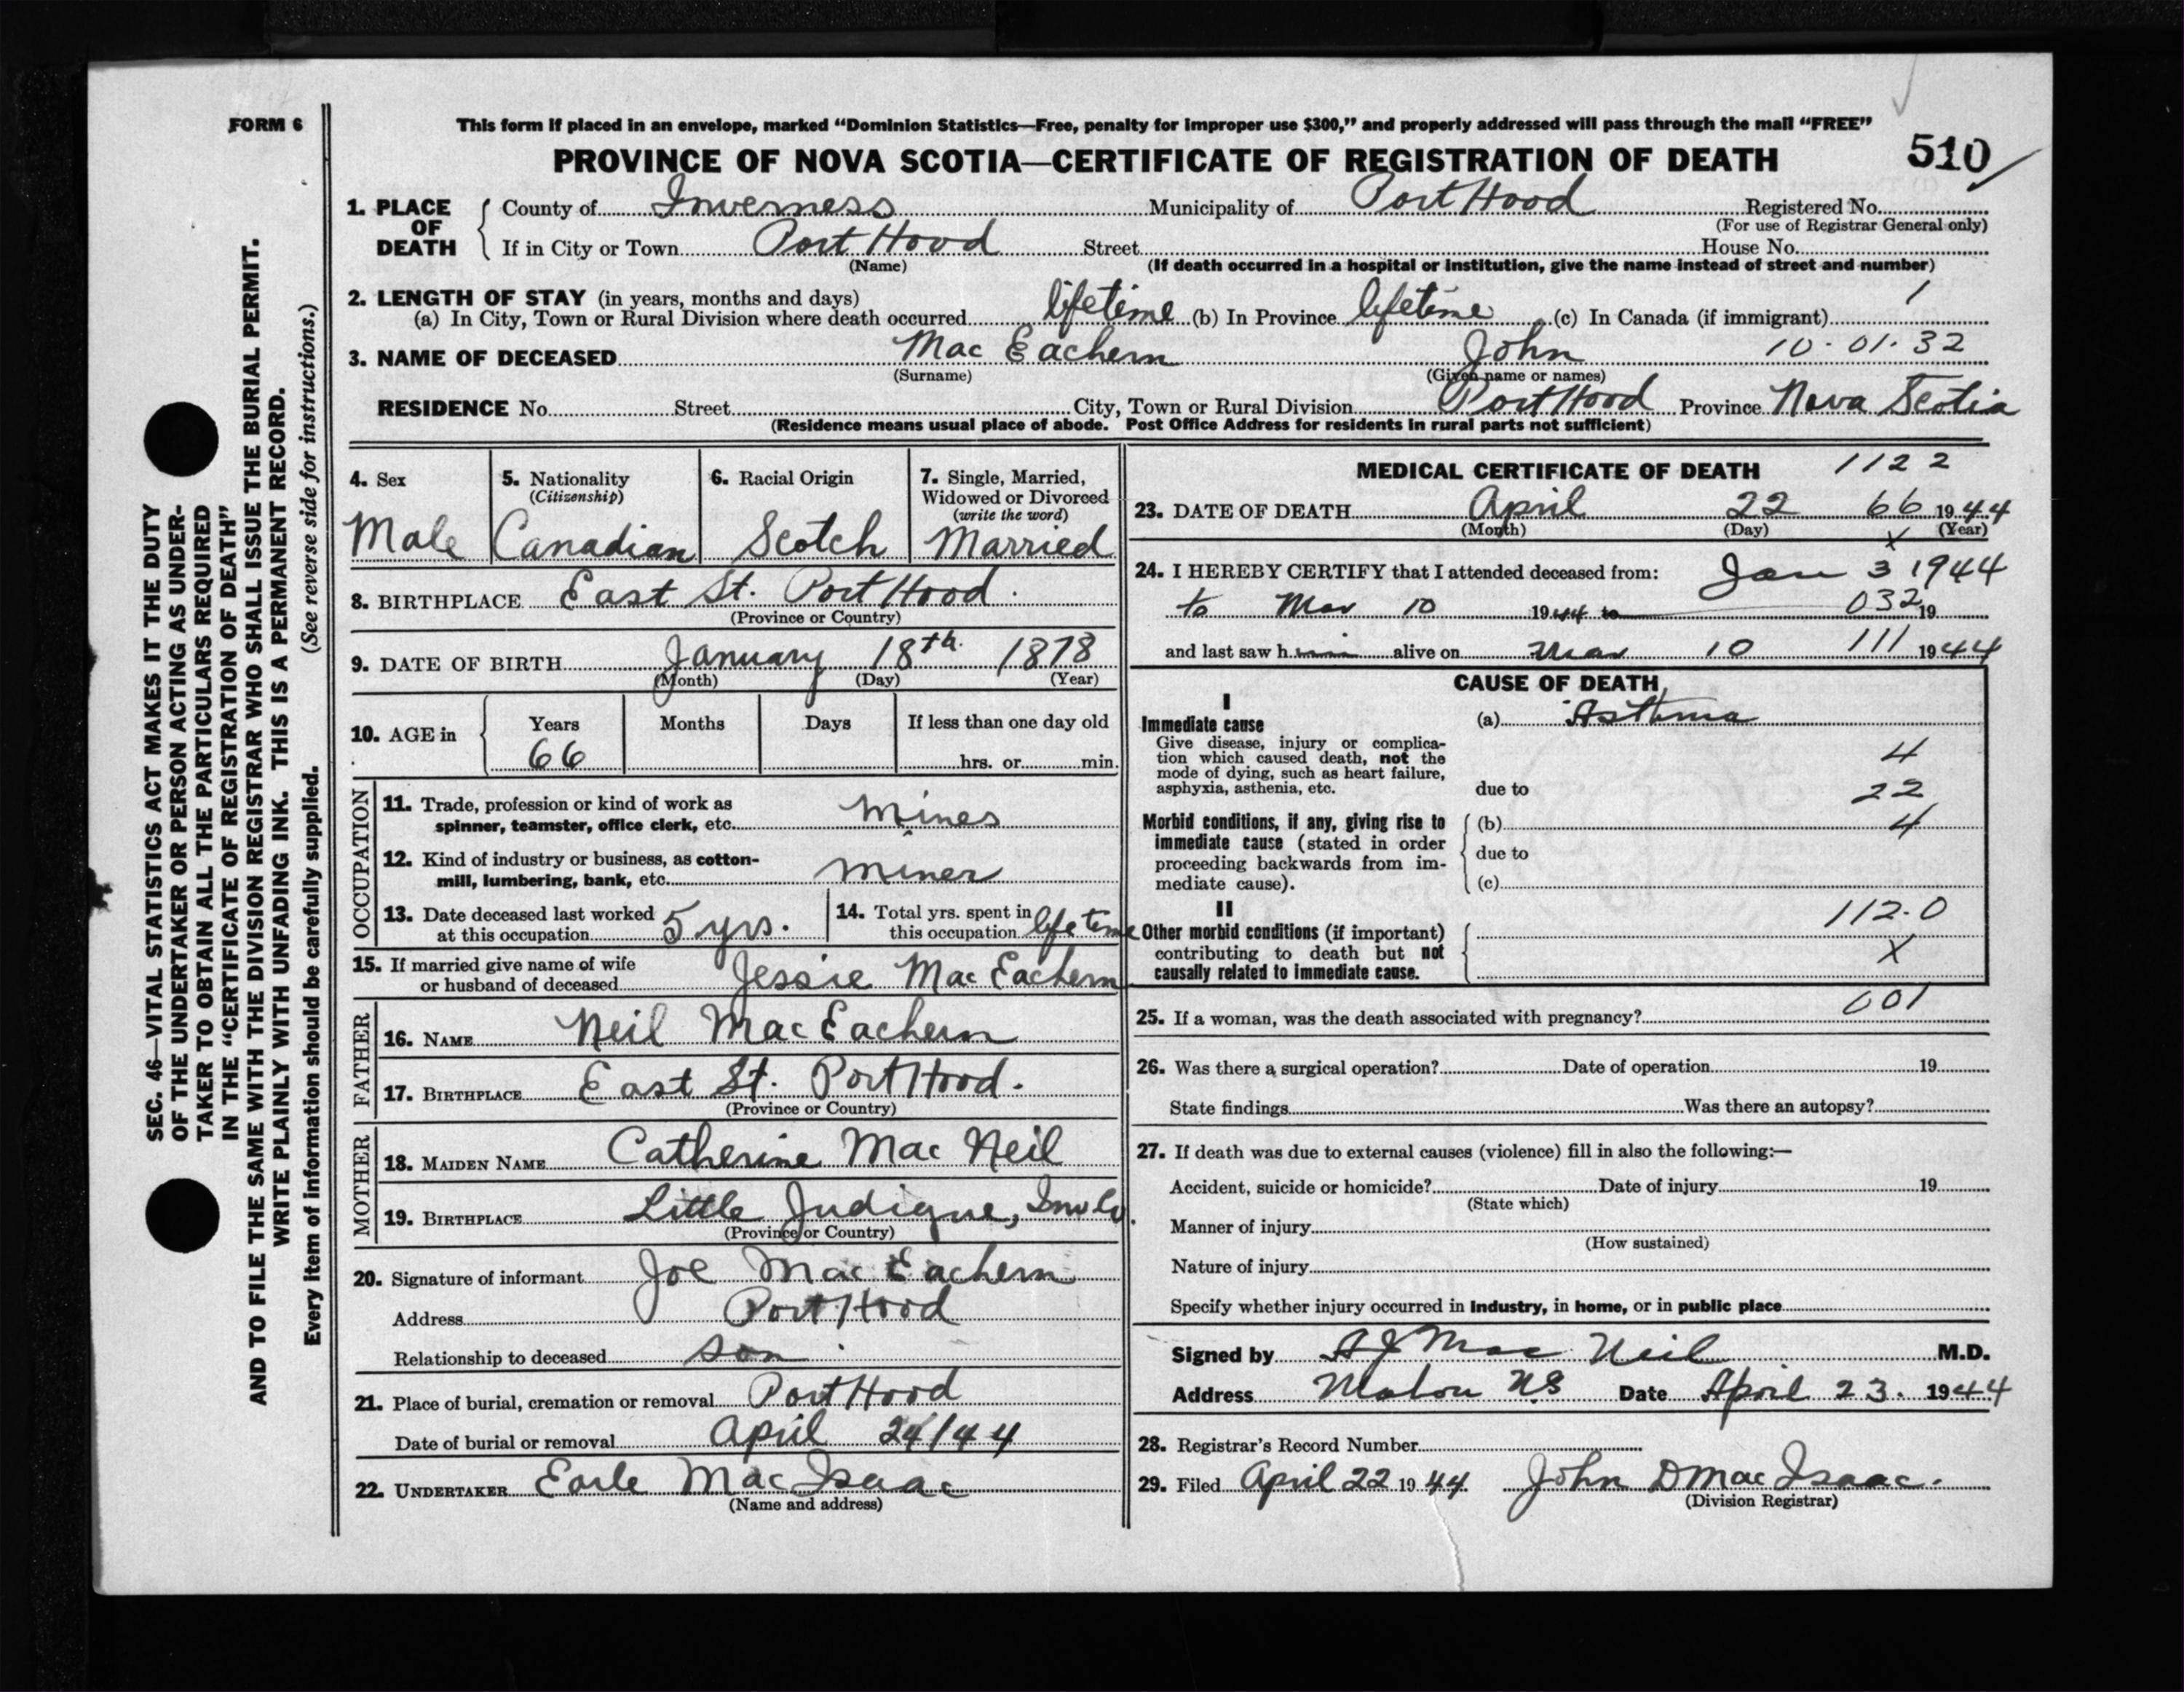 FORM 6
This form if placed in an envelope, marked “Dominion Statistics—Free, penalty for improper use $300,” and properly addressed will pass through the mail “FREE”
PROVINCE OF NOVA SCOTIA—CERTIFICATE OF REGISTRATION OF DEATH 510
1. PLACE OF DEATH County of Inverness Municipality of Port Hood Registered No.
(For use of Registrar General only)
If in City or Town Port Hood Street House No.
(Name) (If death occurred in a hospital or institution, give the name instead of street and number)
2. LENGTH OF STAY (in years, months and days) 1
(a) In City, Town or Rural Division where death occurred lifetime (b) In Province lifetime (c) In Canada (if immigrant)
3. NAME OF DECEASED Mac Eachern John 10.01.32
(Surname) (Given name or names)
RESIDENCE No. Street City, Town or Rural Division Port Hood Province Nova Scotia
(Residence means usual place of abode. Post Office Address for residents in rural parts not sufficient)
4. Sex 5. Nationality (Citizenship) 6. Racial Origin 7. Single, Married, Widowed or Divorced (write the word)
Male Canadian Scotch Married
8. BIRTHPLACE East St. Port Hood.
(Province or Country)
9. DATE OF BIRTH January 18th. 1878
(Month) (Day) (Year)
10. AGE in Years Months Days If less than one day old
66 hrs. or min.
OCCUPATION
11. Trade, profession or kind of work as
spinner, teamster, office clerk, etc. Mines
12. Kind of industry or business, as cotton-
mill, lumbering, bank, etc. miner
13. Date deceased last worked
at this occupation 5 yrs.
14. Total yrs. spent in
this occupation lifetime
15. If married give name of wife
or husband of deceased Jessie Mac Eachern
FATHER
16. NAME Neil Mac Eachern
17. BIRTHPLACE East St. Port Hood.
(Province or Country)
MOTHER
18. MAIDEN NAME Catherine Mac Neil
19. BIRTHPLACE Little Judique, Inv Co.
(Province or Country)
20. Signature of informant Joe Mac Eachern
Address Port Hood
Relationship to deceased son
21. Place of burial, cremation or removal Port Hood
Date of burial or removal April 24/44
22. UNDERTAKER Earle Mac Isaac
(Name and address)
MEDICAL CERTIFICATE OF DEATH 1122
23. DATE OF DEATH April 22 66 1944
(Month) (Day) (Year)
x
24. I HEREBY CERTIFY that I attended deceased from: Jan 3 1944
to Mar 10 1944 to 032 19
and last saw h im alive on Mar 10 111 1944
CAUSE OF DEATH
I
Immediate cause (a) Asthma
Give disease, injury or complica-
tion which caused death, not the 4
mode of dying, such as heart failure,
asphyxia, asthenia, etc. due to 22
Morbid conditions, if any, giving rise to (b) 4
immediate cause (stated in order
proceeding backwards from im- due to
mediate cause). (c)
II 112.0
Other morbid conditions (if important)
contributing to death but not X
causally related to immediate cause.
001
25. If a woman, was the death associated with pregnancy?
26. Was there a surgical operation? Date of operation 19
State findings Was there an autopsy?
27. If death was due to external causes (violence) fill in also the following:—
Accident, suicide or homicide? Date of injury 19
(State which)
Manner of injury
(How sustained)
Nature of injury
Specify whether injury occurred in industry, in home, or in public place
Signed by A J Mac Neil M.D.
Address Mabou NS Date April 23. 1944
28. Registrar's Record Number
29. Filed April 22 1944 John D Mac Isaac.
(Division Registrar)
SEC. 46—VITAL STATISTICS ACT MAKES IT THE DUTY
OF THE UNDERTAKER OR PERSON ACTING AS UNDER-
TAKER TO OBTAIN ALL THE PARTICULARS REQUIRED
IN THE “CERTIFICATE OF REGISTRATION OF DEATH”
AND TO FILE THE SAME WITH THE DIVISION REGISTRAR WHO SHALL ISSUE THE BURIAL PERMIT.
WRITE PLAINLY WITH UNFADING INK. THIS IS A PERMANENT RECORD.
Every item of information should be carefully supplied. (See reverse side for instructions.)